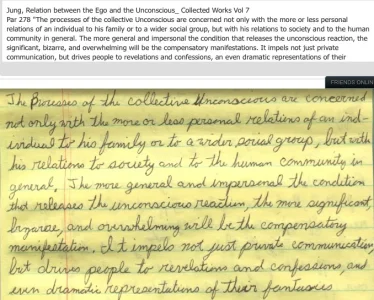 Jung, Relation between the Ego and the Unconscious_ Collected Works Vol 7
Par 278 "The processes of the collective Unconscious are concerned not only with the more or less personal
relations of an individual to his family or to a wider social group, but with his relations to society and to the human
community in general. The more general and impersonal the condition that releases the unconscious reaction, the
significant, bizarre, and overwhelming will be the compensatory manifestations. It impels not just private
communication, but drives people to revelations and confessions, an even dramatic representations of their
FRIENDS ONLIN
The Processes of the collective Unconscious are concerned
not only with the more or less personal relations of an ind-
ividual to his family or to a wider social group, but with
his relations to society and to the human community in
general. The more general and impersonal the condition
that releases the unconscious reaction, the more significant,
bizarre, and overwhelming will be the compensatory
manifestation. It impels not just private communication,
but drives people to revelations and confessions, and
even dramatic representations of their fantasies